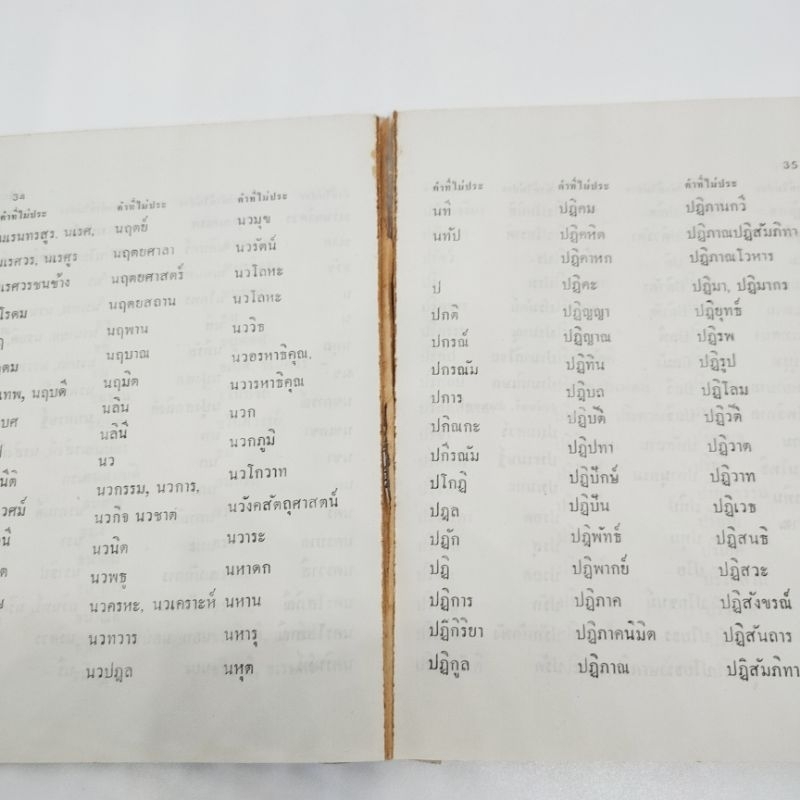 34
คำที่ไม่ประ
นเรนทรสูร, นเรศ,
นเรศวร, นเรศูร
นเรศวรชนช้าง
นีติ
คำที่ไม่ประ
นฤตย์
นฤตยศาลา
นฤตยศาสตร์
นฤตยสถาน
นฤพาน
นฤมาณ
นฤมิต
นลิน
นลินี
นว
นวกรรม, นวการ,
นวกิจ นวชาต
นวนิต
นวพธู
นวครหะ, นวเคราะห์
นวทวาร
นวปฎล
คำที่ไม่ประ
นวมุข
นวรัตน์
นวโลหะ
นวโลหะ
นววิธ
นวอรหาธิคุณ,
นวารหาธิคุณ
นวก
นวกภูมิ
นวโกวาท
นวังคสัตถุศาสตน์
นวาระ
นหาดก
นหาน
นหารุ
นหุต
35
คำที่ไม่ประ
นที
นทัป
ป
ปกติ
ปกรณ์
ปกรณัม
ปการ
ปกิณกะ
ปกีรณัม
ปโกฏิ
ปฎล
ปฎัก
ปฏิ
ปฏิการ
ปฏิกิริยา
ปฏิกูล
คำที่ไม่ประ
ปฏิคม
ปฏิคหิต
ปฏิคาหก
ปฏิคะ
ปฏิญญา
ปฏิญาณ
ปฏิทิน
ปฏิบถ
ปฏิบัติ
ปฏิปทา
ปฏิปักษ์
ปฏิปัน
ปฏิพัทธ์
ปฏิพากย์
ปฏิภาค
ปฏิภาคนิมิต
ปฏิภาณ
คำที่ไม่ประ
ปฏิภานกวี
ปฏิภาณปฏิสัมภิทา
ปฏิภาณโวหาร
ปฏิมา, ปฏิมากร
ปฏิยุทธ์
ปฏิรพ
ปฏิรูป
ปฏิโลม
ปฏิวัติ
ปฏิวาต
ปฏิวาท
ปฏิเวธ
ปฏิสนธิ
ปฏิสวะ
ปฏิสังขรณ์
ปฏิสันถาร
ปฏิสัมภิทา